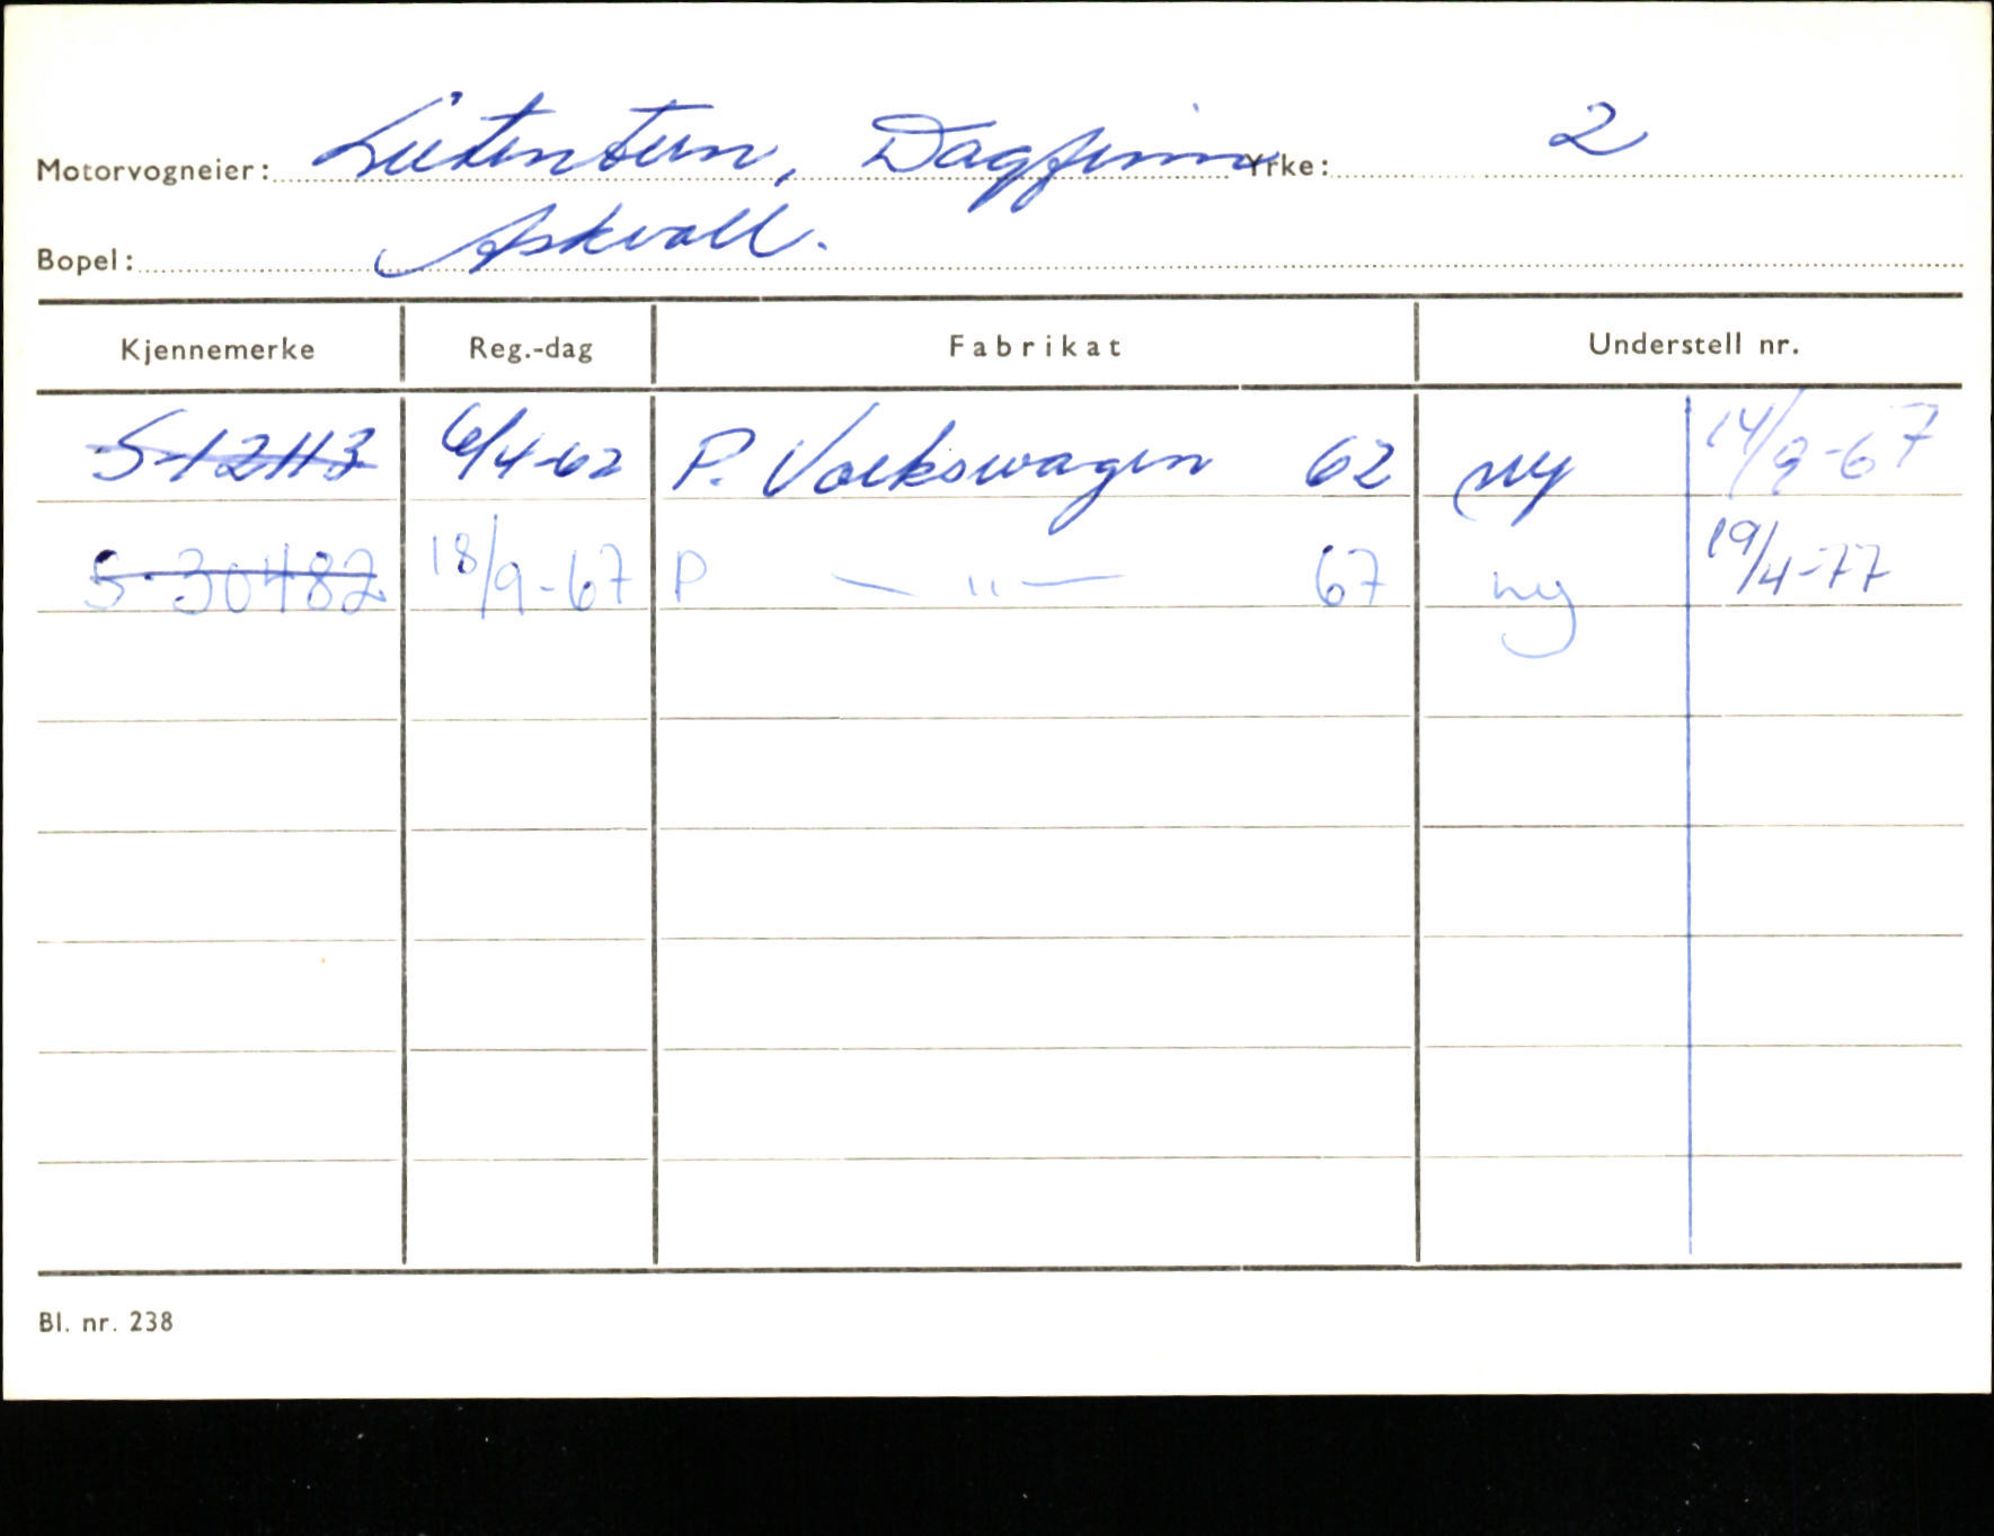 Motorvogneier: Liitentun, Dagfinn Yrke: 2
Bopel: Askvoll.
Kjennemerke Reg.-dag Fabrikat Understell nr.
S-12113 6/4-62 P. Volkswagen 62 ny 14/9-67
S-30482 18/9-67 P — " — 67 ny 19/4-77
Bl. nr. 238